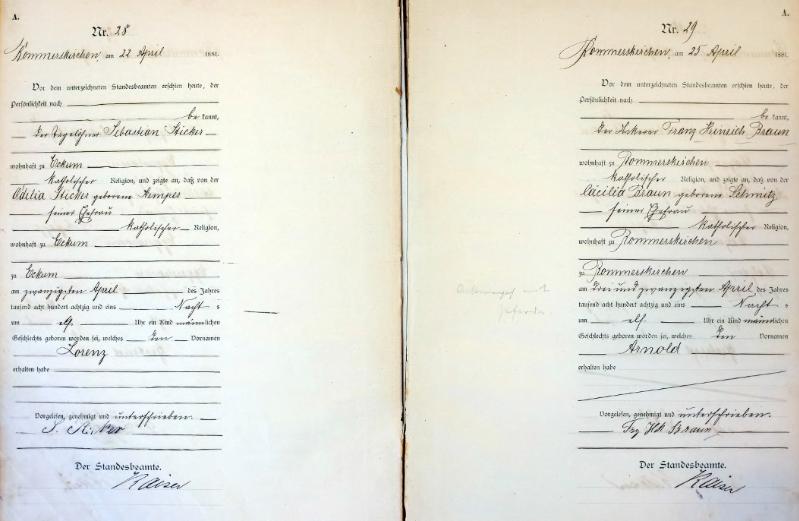 A.
Nr. 28
Rommerskirchen am 22 April 1881.
Vor dem unterzeichneten Standesbeamten erschien heute, der
Persönlichkeit nach
be kannt,
der Tagelöhner Sebastian Sticker
wohnhaft zu Eckum
katholischer Religion, und zeigte an, daß von der
Odilia Sticker geborene Kemper
seiner Ehefrau
katholischer Religion,
wohnhaft zu Eckum
zu Eckum
am zwanzigsten April des Jahres
tausend acht hundert achtzig und eins Nachts
um elf Uhr ein Kind männlichen
Geschlechts geboren worden sei, welches den Vornamen
Lorenz
erhalten habe
Vorgelesen, genehmigt und unterschrieben.
S. Sticker
Der Standesbeamte.
Kaiser
A.
Nr. 29
Rommerskirchen, am 25 April 1881.
Vor dem unterzeichneten Standesbeamten erschien heute, der
Persönlichkeit nach
be kannt,
der Ackerer Franz Heinrich Braun
wohnhaft zu Rommerskirchen
katholischer Religion, und zeigte an, daß von der
Cäcilia Braun geborene Schmitz
seiner Ehefrau
katholischer Religion,
wohnhaft zu Rommerskirchen
zu Rommerskirchen
am drei und zwanzigsten April des Jahres
tausend acht hundert achtzig und eins Nachts
um elf Uhr ein Kind männlichen
Geschlechts geboren worden sei, welches den Vornamen
Arnold
erhalten habe
Vorgelesen, genehmigt und unterschrieben.
Frz Hch Braun
Der Standesbeamte.
Kaiser